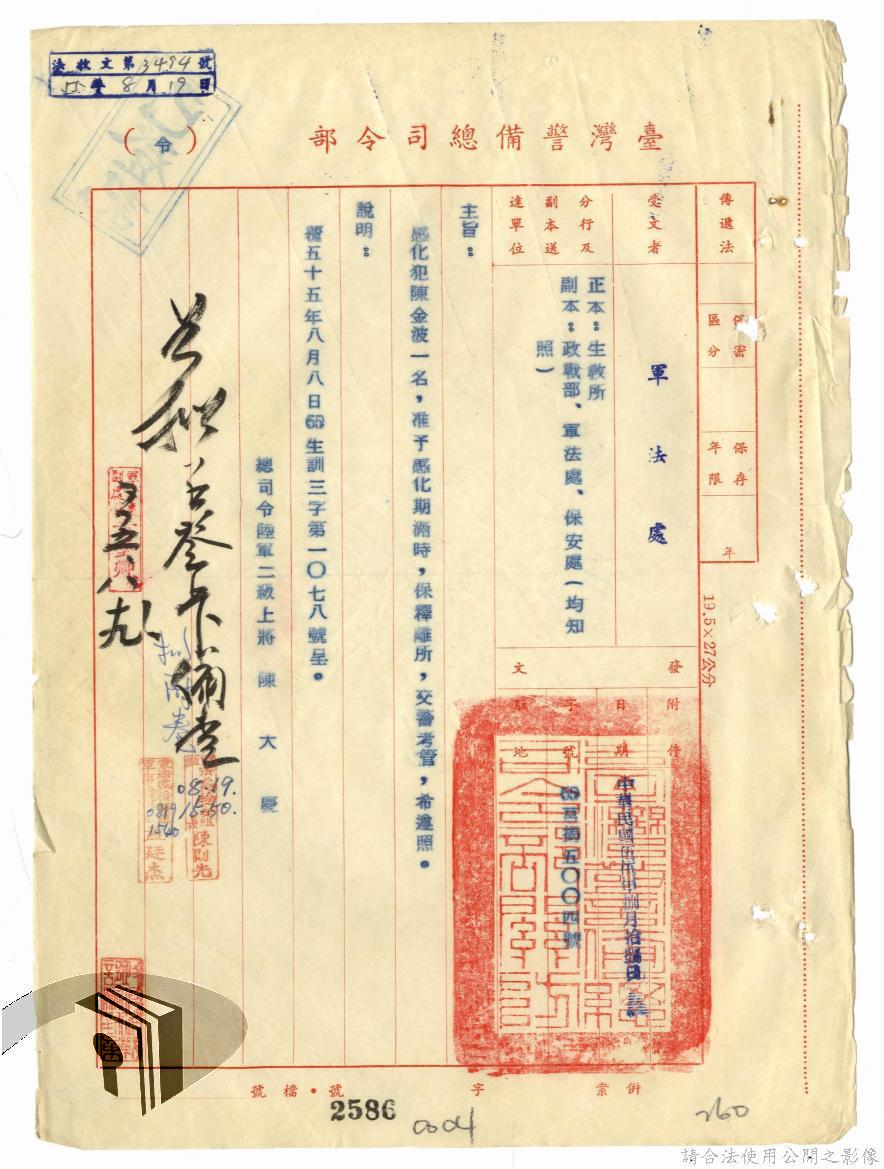 法收文第3494號
55年8月19日
臺灣警備總司令部
(令)
傳遞法
保密區分
保存年限
年
受文者
軍法處
分行及副本送達單位
正本：生教所
副本：政戰部、軍法處、保安處（均知照）
發文
附件
日期
字號
駐地
中華民國伍拾伍年捌月拾
五〇〇四號
主旨：
感化犯陳金波一名，准予感化期滿時，保釋離所，交警考管，希遵照。
說明：
覆五十五年八月八日(55)生訓三字第一〇七八號呈。
總司令陸軍二級上將 陳大慶
登卡備查
08.19.
15.50.
陳則先
0819
1540
廷杰
19.5×27公分
併案
字
號・檔號
2586
0004
260
請合法使用公開之影像